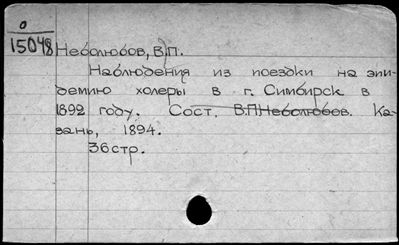 0
15048 Неболюбов, В.П.
Наблюдения из поездки на эпи-
демию холеры в г. Симбирск в
1892 году. Сост. В.П.Неболюбов. Ка-
зань, 1894.
36стр.